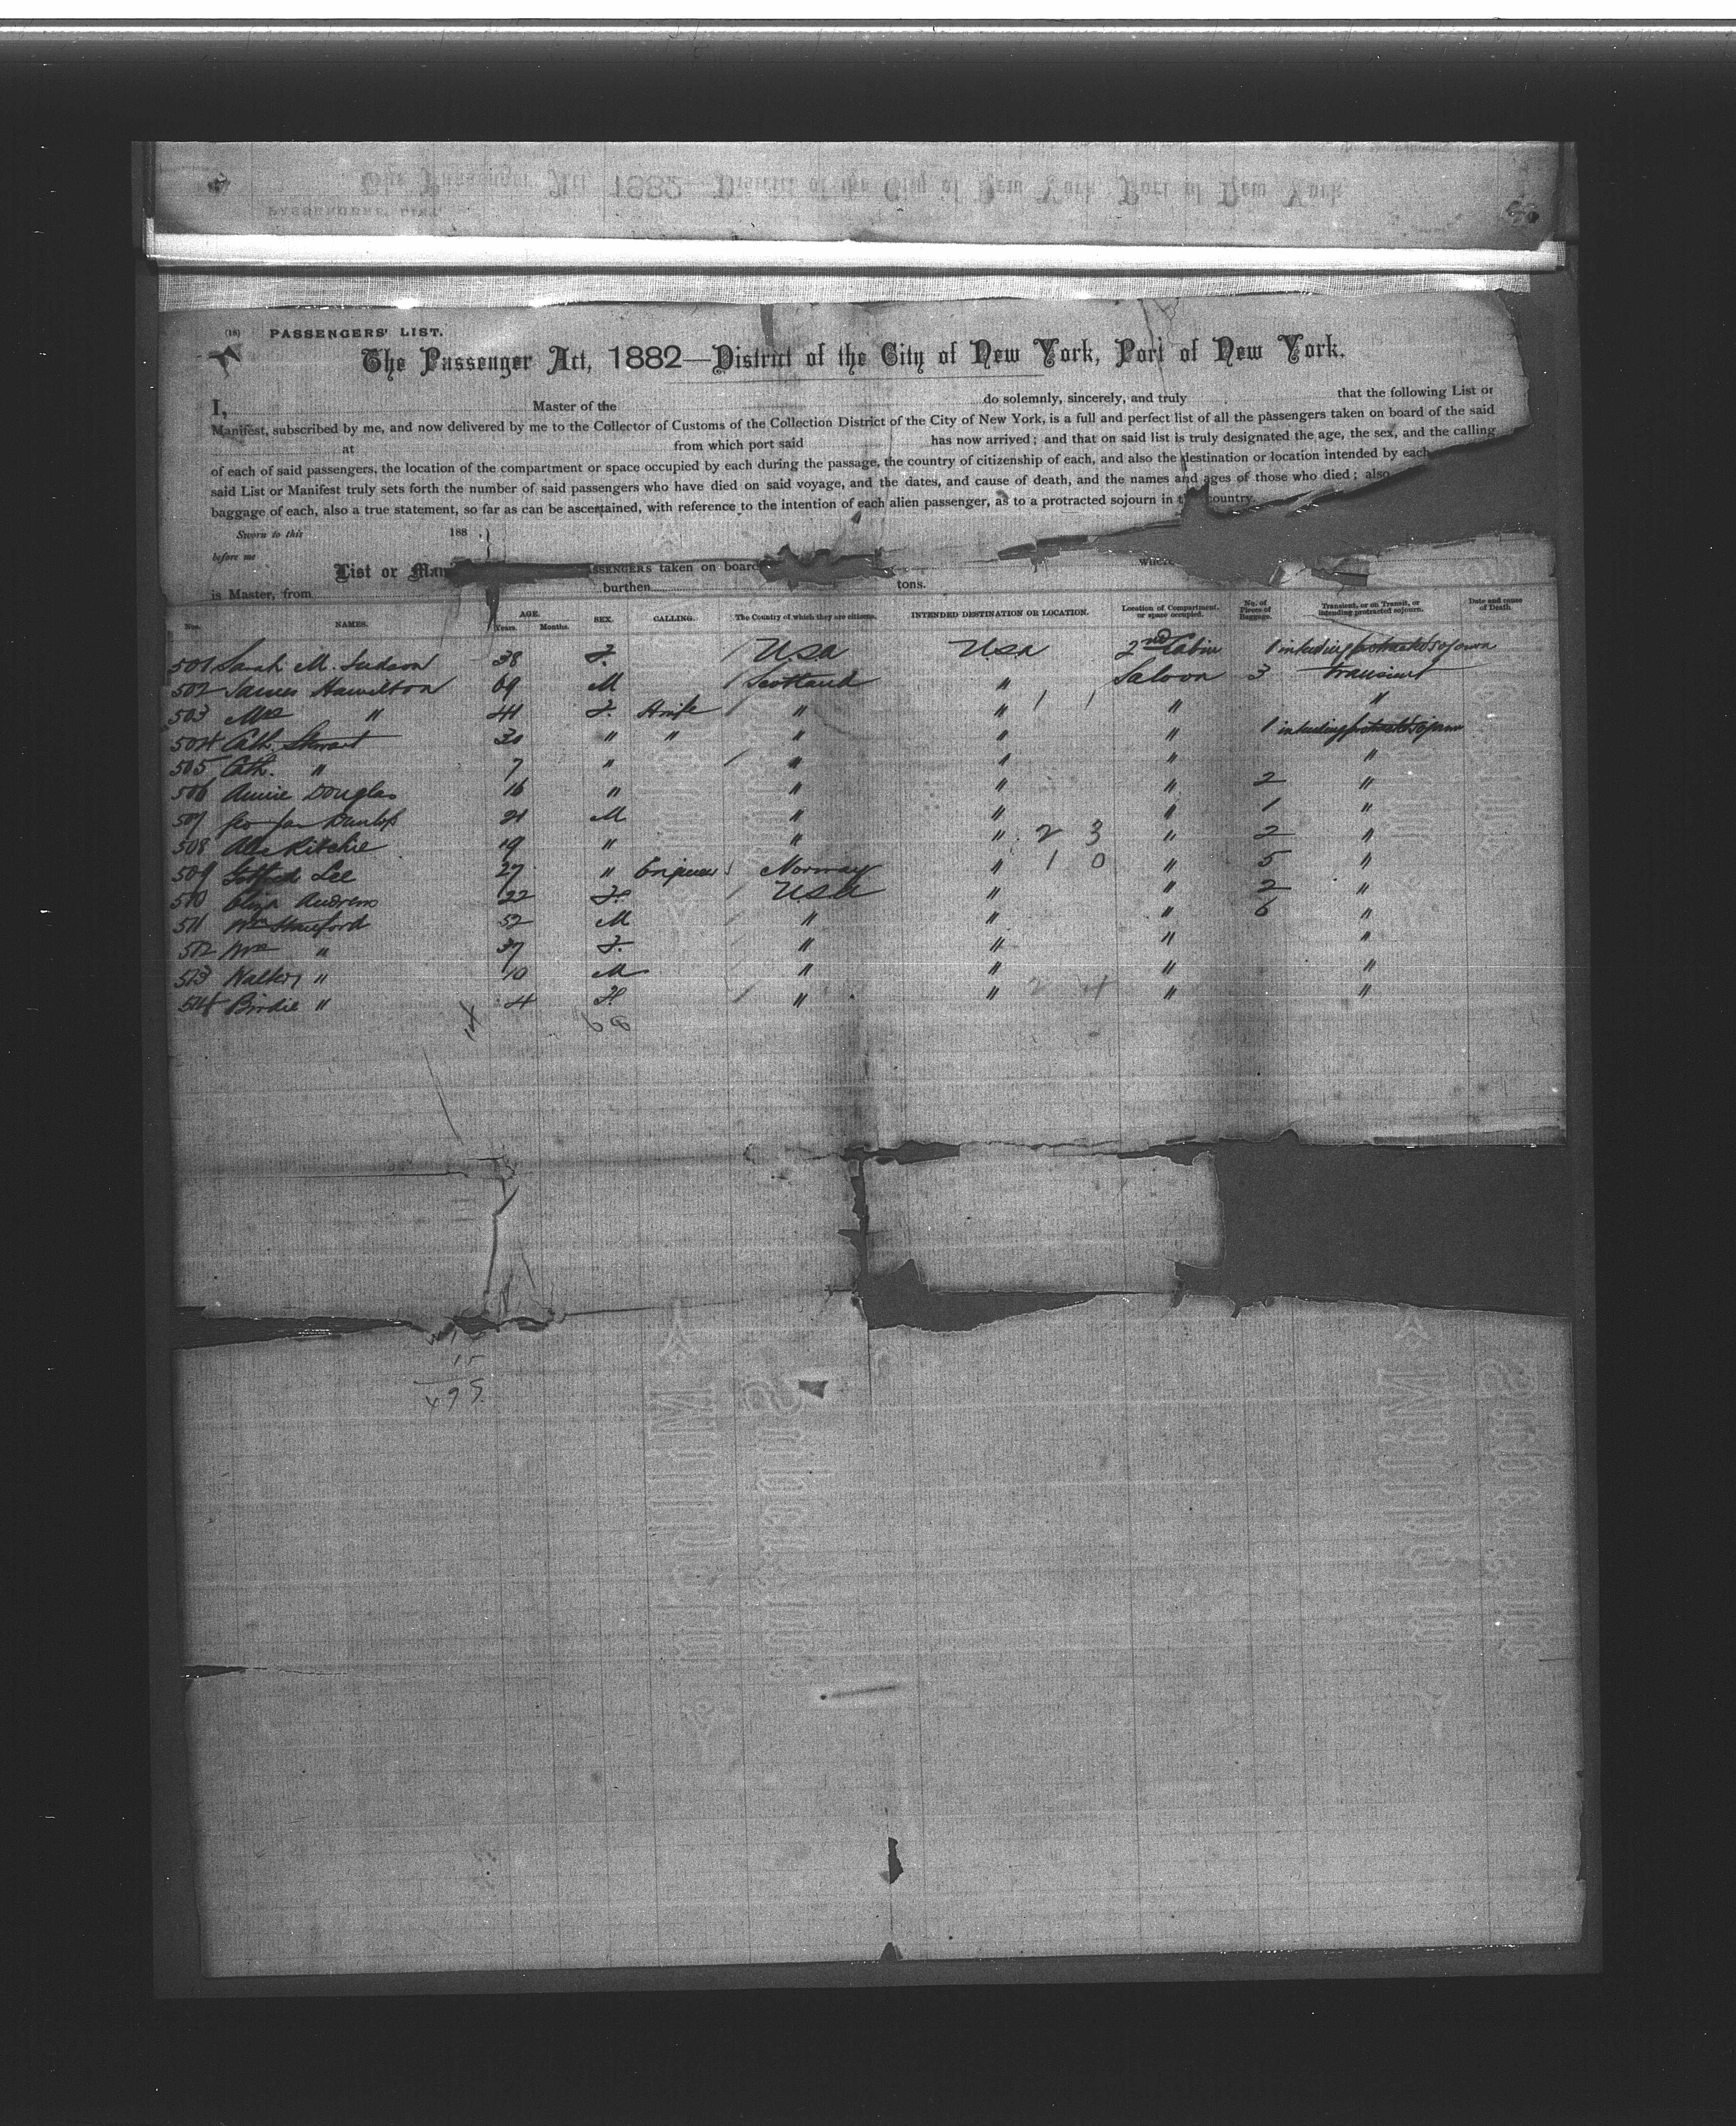 (18) PASSENGERS' LIST.
The Passenger Act, 1882—District of the City of New York, Port of New York.
I, Master of the do solemnly, sincerely, and truly that the following List or
Manifest, subscribed by me, and now delivered by me to the Collector of Customs of the Collection District of the City of New York, is a full and perfect list of all the passengers taken on board of the said
at from which port said has now arrived; and that on said list is truly designated the age, the sex, and the calling
of each of said passengers, the location of the compartment or space occupied by each during the passage, the country of citizenship of each, and also the destination or location intended by each
said List or Manifest truly sets forth the number of said passengers who have died on said voyage, and the dates, and cause of death, and the names and ages of those who died; also
baggage of each, also a true statement, so far as can be ascertained, with reference to the intention of each alien passenger, as to a protracted sojourn in country.
Sworn to this 188
before me
List or Man taken on board
is Master, from burthen tons.
Nos. NAMES. AGE. Years. Months. SEX. CALLING. The Country of which they are citizens. INTENDED DESTINATION OR LOCATION. Location of Compartment, or space occupied. No. of Pieces of Baggage. Transient, or on Transit, or intending protracted sojourn. Date and cause of Death
501 Sarah M. Judson 38 F. USA USA 2nd Cabin 1 intending protracted sojourn
502 James Hamilton 69 M Scotland " Saloon 3 Transient
503 Mrs " 41 F. " " 1 1 " "
504 Cath. Stewart 30 " " " " " 1 intending protracted sojourn
505 Cath. " 7 " " " " "
506 Annie Douglas 16 " " " " 2 "
507 Geo Dunlop 21 M " " " 1 "
508 Alex Ritchie 19 " " " 2 3 " 2 "
509 Lee 27 " Engineer Norway " 1 0 " 5 "
510 Eliza Andrews 22 F. USA " " 2 "
511 Wm 52 M " " " 6 "
512 Mrs " 37 F. " " " "
513 " 10 M " " " "
514 Birdie " 4 F. " " 2 4 " "
15
495